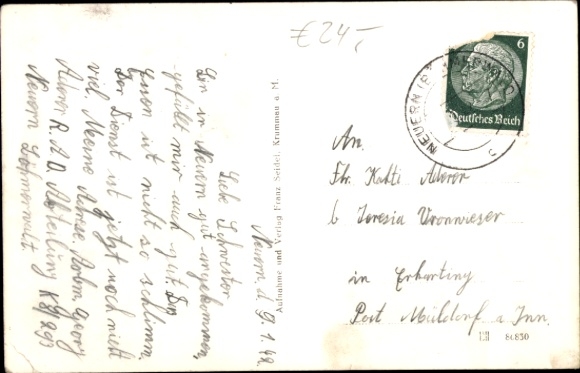 € 24,-
6
Deutsches Reich
NEUERN
Neuern d. 9.1.42
Liebe Schwester
Bin in Neuern gut angekommen,
gefällt mir auch gut. Das
Essen ist nicht so schlimm.
Der Dienst ist jetzt noch nicht
viel. Meine Adresse. Arbm. Georg
R.A.D. Abteilung K 8/293
Neuern Böhmerwald.
Aufnahme und Verlag Franz Seidel, Krummau a. M.
An.
Frl. Kathi
b Teresia Vronwieser
in Erharting
Post Mühldorf a Inn.